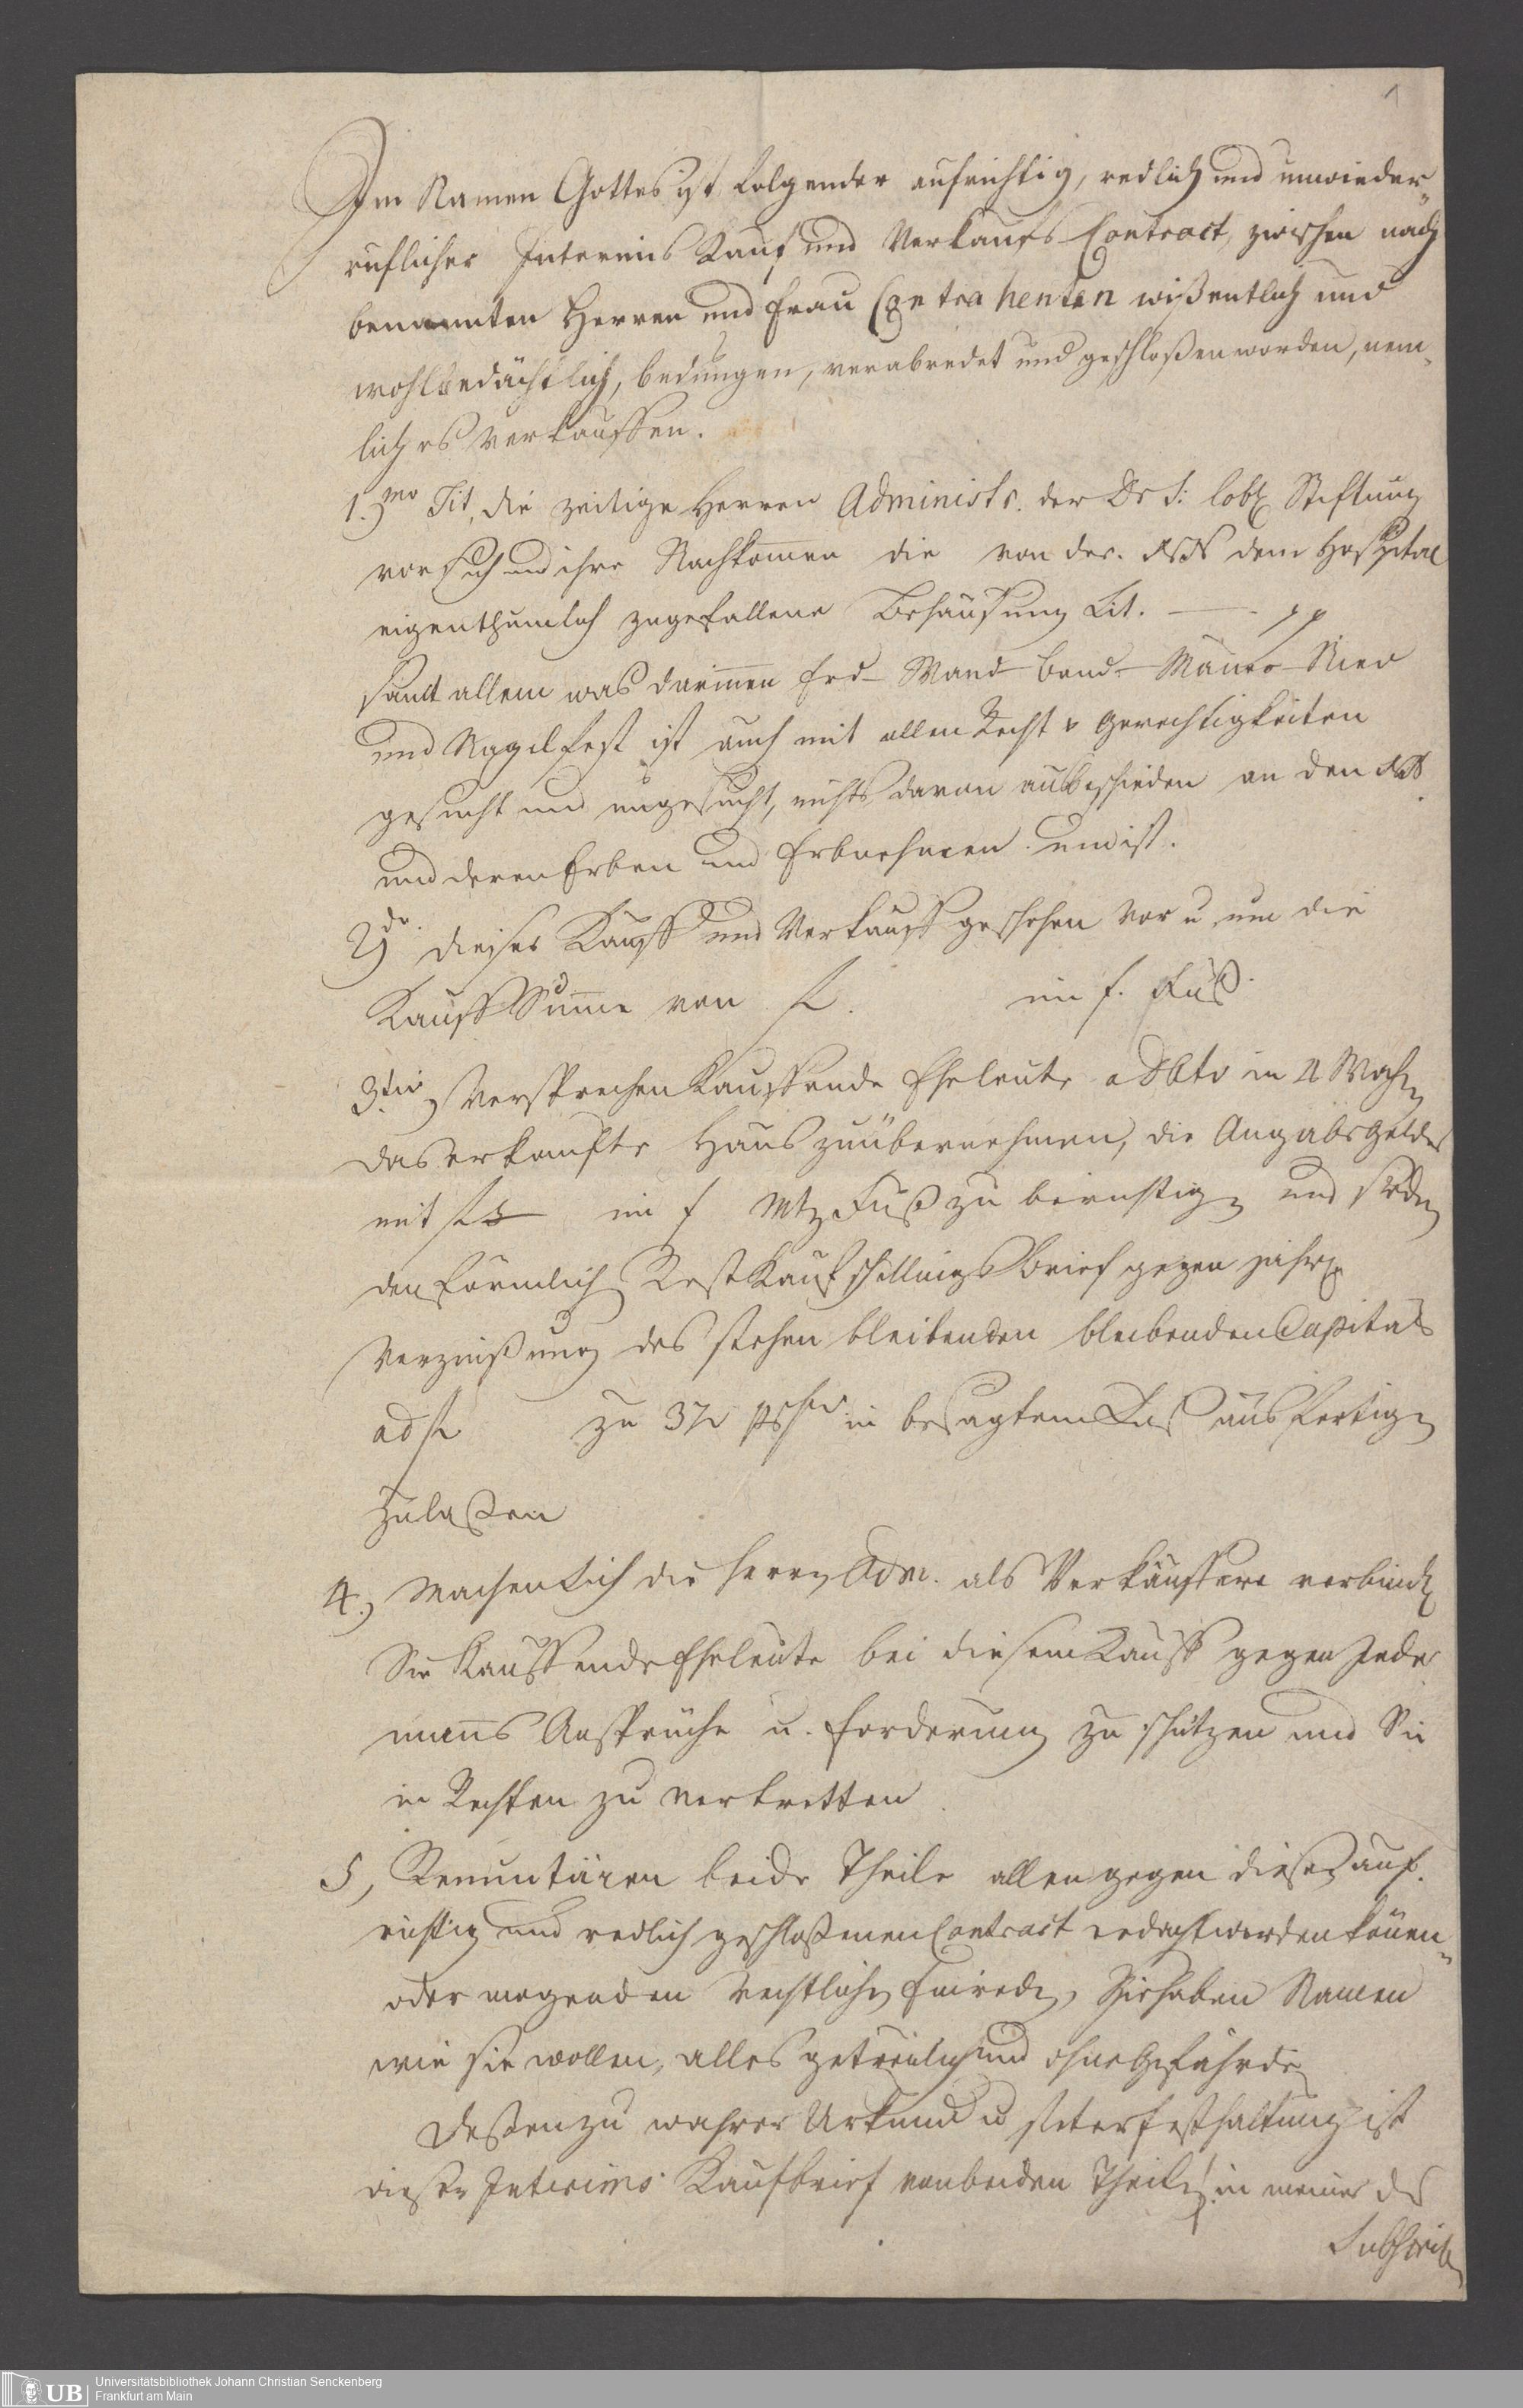 1
Im Namen Gottes ist folgender aufrichtig, redlich und unwieder„
ruflicher Interims Kauf und Verkaufs Contract, zwischen nach
benannten Herren und Frau Contrahenten wißentlich und
wohlbedächtlich, bedungen, verabredet und geschloßen worden, nem„
lich es verkauffen.
1.) mo Tit, die zeitige Herren Administr. der Dr S: löbl Stiftung
vor sich und ihre Nachkom̄en die von der. NN dem Hospital
eigenthumlich zugefallene Behausung Lit. — pp
samt allem was darin̄en Erd- Wand- Band- Mauer- Nied
und Nagelfest ist auch mit allen Recht & Gerechtigkeiten
gesucht und ungesucht, nichts davon ausbeschieden an den NN
und deren Erben und Erbnehmen
2) do. dieser Kauff und Verkauff geschehen vor u um die
Kauff Sum̄e von f. im f. Fuß.
3. tio, Versprechen Kauffende Eheleute a dato in 4 Woch
das erkaufte Haus zu übernehmen, die Angabs Gelder
mit f im f Mtz Fuß zu berichtig und
den förmlich Rest Kaufschillings Brief gegen jährl
Verzinßung des stehen bleibenden bleibenden Capitals
ad f zu 3½ in besagtem Fuß ausfertig
zu laßen
4., Machen sich die Herrn Adm. als Verkäuffere verbindl
Die Kauffende Eheleute bei diesem Kauff gegen Jeder
man̄s Ansprüche u. Forderung zu schützen und Sie
in Rechten zu vertretten
5, Renuntiiren beide Theile allen gegen diesen auf.
richtig und redlich geschloßenen Contract erdacht werden kön̄en„
oder mögenden rechtlich Einred, Sie haben Namen
wie sie wollen, alles getreulich und ohne Gefährde
Deßen zu wahrer Urkund u steter Festhaltung ist
dieser Interims Kaufbrief von beiden Theil in meiner des
Subscrib
UB Universitätsbibliothek Johann Christian Senckenberg
Frankfurt am Main